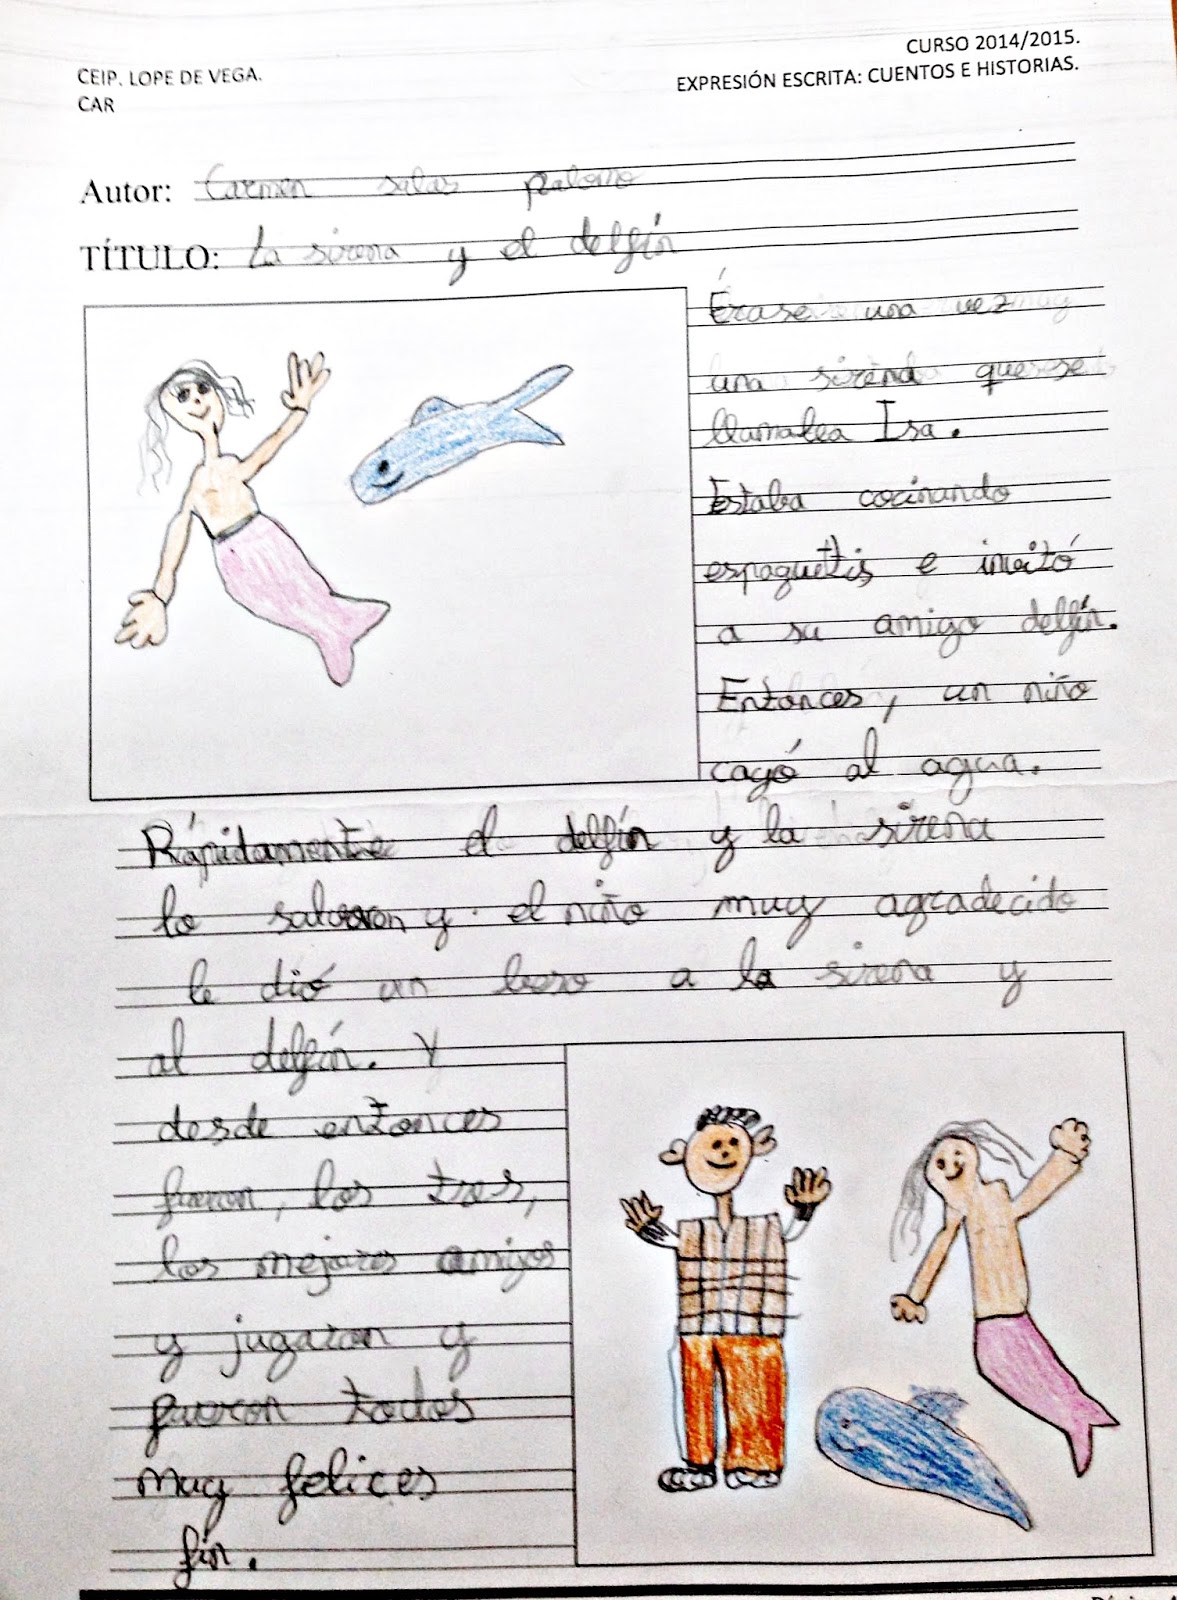 CURSO 2014/2015.
CEIP. LOPE DE VEGA.
EXPRESIÓN ESCRITA: CUENTOS E HISTORIAS.
CAR
Autor: Carmen salas palomo
TÍTULO: La sirena y el delfín
Érase una vez
una sirena que se
llamaba Isa.
Estaba cocinando
espaguetis e invitó
a su amigo delfín.
Entonces, un niño
cayó al agua.
Rápidamente el delfín y la sirena
lo salvaron y el niño muy agradecido
le dió un beso a la sirena y
al delfín. Y
desde entonces
fueron, los tres,
los mejores amigos
y jugaron y
fueron todos
muy felices
fin.